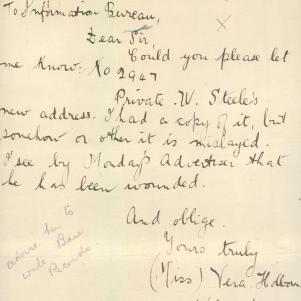 To Information Bureau,
Dear Sir,
Could you please let
me know: No 2947
Private W. Steele's
new address. I had a copy of it, but
somehow or other it is mislayed.
I see by Monday's Advertiser that
he has been wounded.
And oblige.
Yours truly
(Miss) Vera
advise her to
write Base
Records